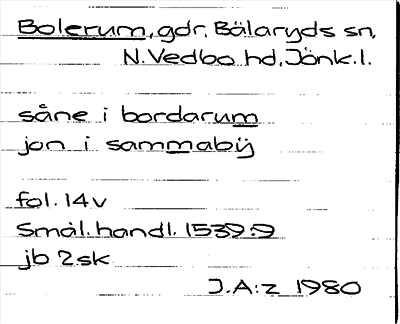 Bolerum, gdr, Bälaryds sn,
N. Vedbo hd, Jönk. l.
såne i bordarum
jon i sammabÿ
fol. 14v
Smål. handl. 1539:9
jb 2sk
J.A:z 1980